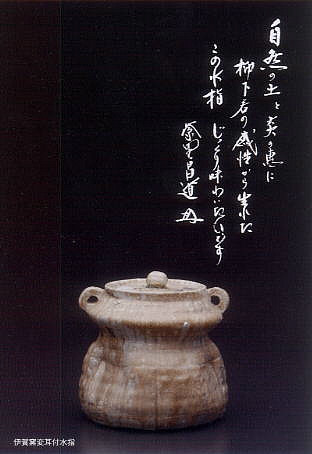 自然の土と炎の恵に
柳下君の感性から出来た
この水指
じっくり味わいたいです
昌道
伊賀窯変耳付水指